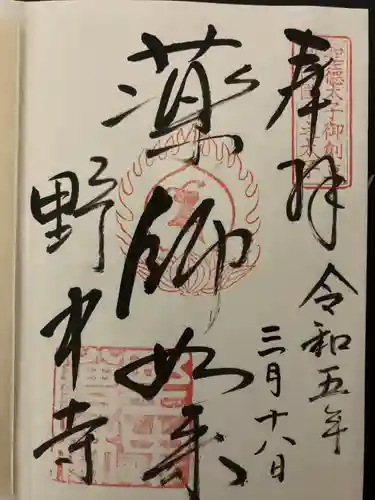 奉拝
聖徳太子御創
令和五年
三月十八日
薬師如来
野中寺